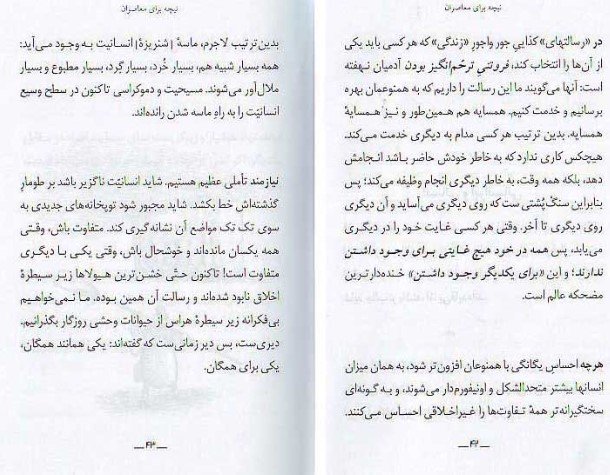 نیچه برای معاصران
در «رسالتهای» کذاییِ جور واجورِ «زندگی» که هر کسی باید یکی
از آن‌ها را انتخاب کند، فروتنیِ ترحّم‌انگیز بودن آدمیان نهفته
است: آنها می‌گویند ما این رسالت را داریم که به همنوعان بهره
برسانیم و خدمت کنیم. همسایه هم همین‌طور و نیز همسایهٔ
همسایه. بدین ترتیب هر کسی مدام به دیگری خدمت می‌کند.
هیچکس کاری ندارد که به خاطر خودش حاضر باشد انجامش
دهد، بلکه همه وقت، به خاطر دیگری انجام وظیفه می‌کند؛ پس
بنابراین سنگ‌پُشتی ست که روی دیگری می‌آساید و آن دیگری
روی دیگری تا آخر. وقتی هر کسی غایت خود را در دیگری
می‌یابد، پس همه در خود هیچ غایتی برای وجود داشتن
ندارند؛ و این «برای یکدیگر وجود داشتن» خنده‌دارترین
مضحکه عالم است.
هرچه احساس یگانگی با همنوعان افزون‌تر شود، به همان میزان
انسانها بیشتر متحدالشکل و اونیفورم‌دار می‌شوند، و به گونه‌ای
سختگیرانه‌تر همهٔ تفاوت‌ها را غیراخلاقی احساس می‌کنند.
ـــ ۴۲ ـــ
نیچه برای معاصران
بدین‌ترتیب لاجرم، ماسهٔ | شنریزهٔ | انسانیت به وجود می‌آید:
همه بسیار شبیه هم، بسیار خُرد، بسیار گِرد، بسیار مطبوع و بسیار
ملال‌آور می‌شوند. مسیحیت و دموکراسی تاکنون در سطح وسیع
انسانیّت را به راهِ ماسه شدن رانده‌اند.
نیازمند تأملی عظیم هستیم. شاید انسانیّت ناگزیر باشد بر طومارِ
گذشته‌اش خط بکشد. شاید مجبور شود توپخانه‌های جدیدی به
سوی تک تک مواضع آن نشانه‌گیری کند. متفاوت باش، وقتی
همه یکسان مانده‌اند و خوشحال باش، وقتی یکی با دیگری
متفاوت است! تاکنون حتّی خشن‌ترین هیولاها زیر سیطرهٔ
اخلاق نابود شده‌اند و رسالت آن همین بوده. ما نمی‌خواهیم
بی‌فکرانه زیر سیطرهٔ هراس از حیوانات وحشی روزگار بگذرانیم.
دیری‌ست، بس دیر زمانی‌ست که گفته‌اند: یکی همانند همگان،
یکی برای همگان.
ـــ ۴۳ ـــ